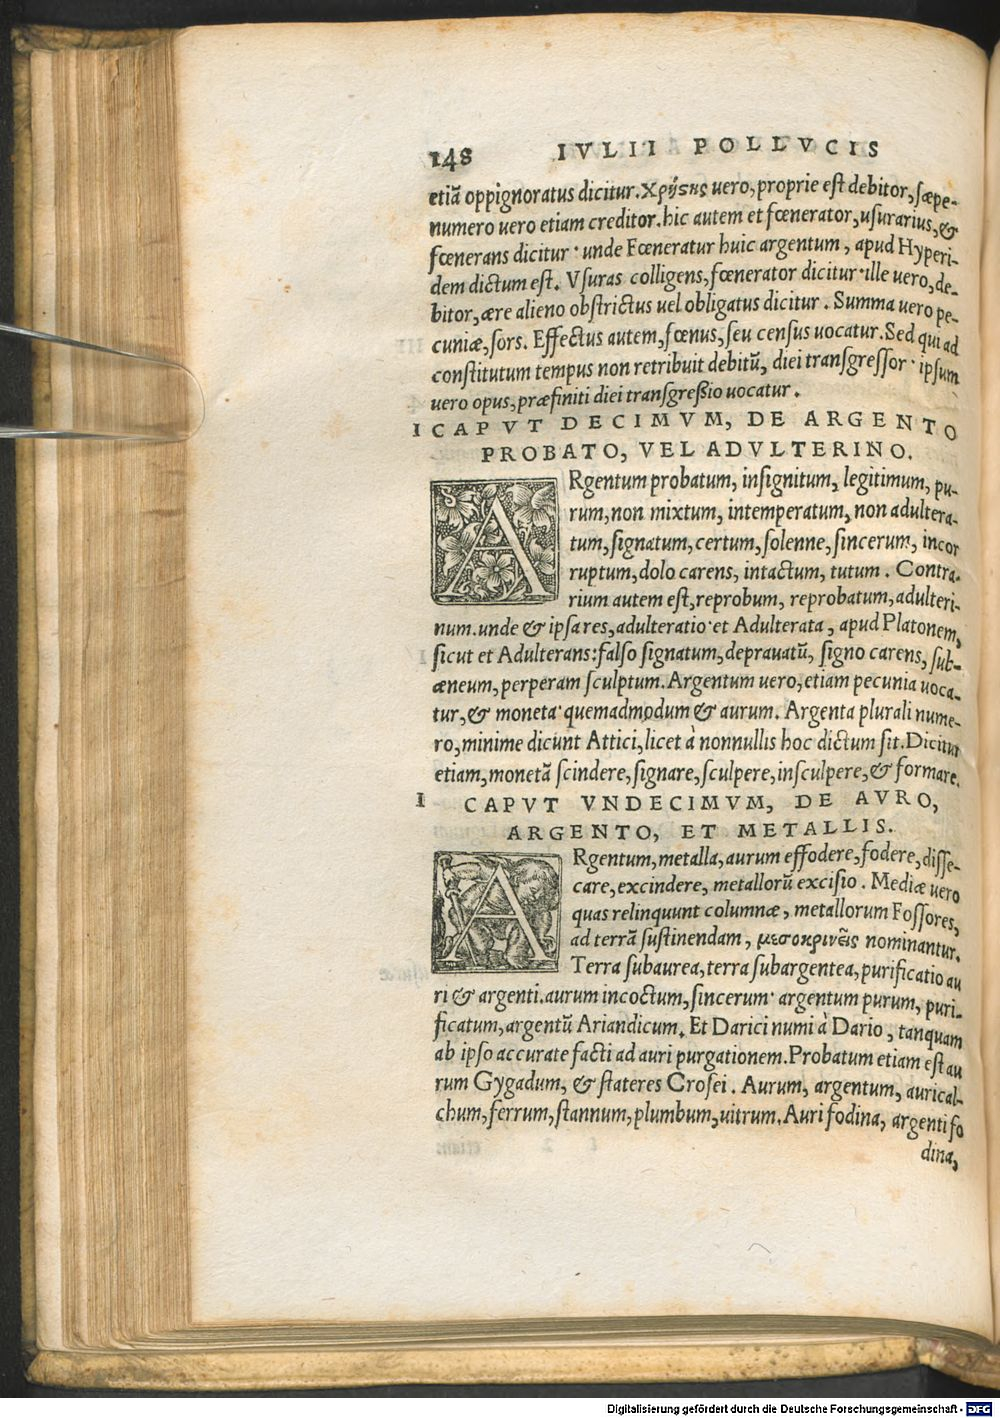 148 IVLII POLLVCIS
etiā oppignoratus dicitur. χρήστης uero, proprie est debitor, sæpe-
numero uero etiam creditor. hic autem et fœnerator, usurarius, &
fœnerans dicitur · unde Fœneratur huic argentum, apud Hyperi-
dem dictum est. Vsuras colligens, fœnerator dicitur · ille uero, de-
bitor, ære alieno obstrictus uel obligatus dicitur. Summa uero pe-
cuniæ, sors. Effectus autem, fœnus, seu census uocatur. Sed qui ad
constitutum tempus non retribuit debitū, diei transgressor · ipsum
uero opus, præfiniti diei transgreßio uocatur.
I CAPVT DECIMVM, DE ARGENTO
PROBATO, VEL ADVLTERINO.
ARgentum probatum, insignitum, legitimum, pu-
rum, non mixtum, intemperatum, non adultera-
tum, signatum, certum, solenne, sincerum, incor
ruptum, dolo carens, intactum, tutum. Contra-
rium autem est, reprobum, reprobatum, adulteri-
num. unde & ipsa res, adulteratio · et Adulterata, apud Platonem,
sicut et Adulterans: falso signatum, deprauatū, signo carens, sub-
æneum, perperam sculptum. Argentum uero, etiam pecunia uoca-
tur, & moneta · quemadmodum & aurum. Argenta plurali nume-
ro, minime dicunt Attici, licet à nonnullis hoc dictum sit. Dicitur
etiam, monetā scindere, signare, sculpere, insculpere, & formare.
I CAPVT VNDECIMVM, DE AVRO,
ARGENTO, ET METALLIS.
ARgentum, metalla, aurum effodere, fodere, disse-
care, excindere, metallorū excisio. Mediæ uero
quas relinquunt columnæ, metallorum Fossores,
ad terrā sustinendam, μεσοκρινεῖς nominantur.
Terra subaurea, terra subargentea, purificatio au
ri & argenti. aurum incoctum, sincerum · argentum purum, puri-
ficatum, argentū Ariandicum. Et Darici numi à Dario, tanquam
ab ipso accurate facti ad auri purgationem. Probatum etiam est au
rum Gygadum, & stateres Crosei. Aurum, argentum, aurical-
chum, ferrum, stannum, plumbum, uitrum. Auri fodina, argenti fo
dina,
Digitalisierung gefördert durch die Deutsche Forschungsgemeinschaft - DFG